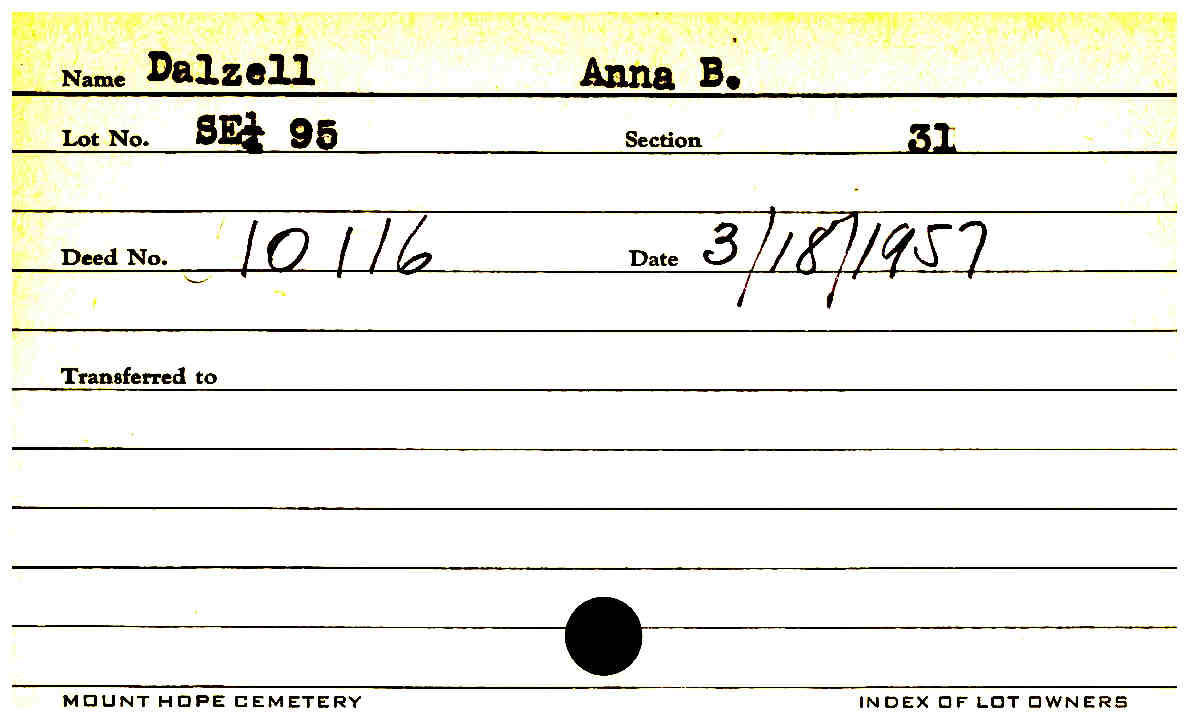 Name Dalzell Anna B.
Lot No. SE¼ 95 Section 31
Deed No. 10116 Date 3/18/1957
Transferred to
MOUNT HOPE CEMETERY INDEX OF LOT OWNERS